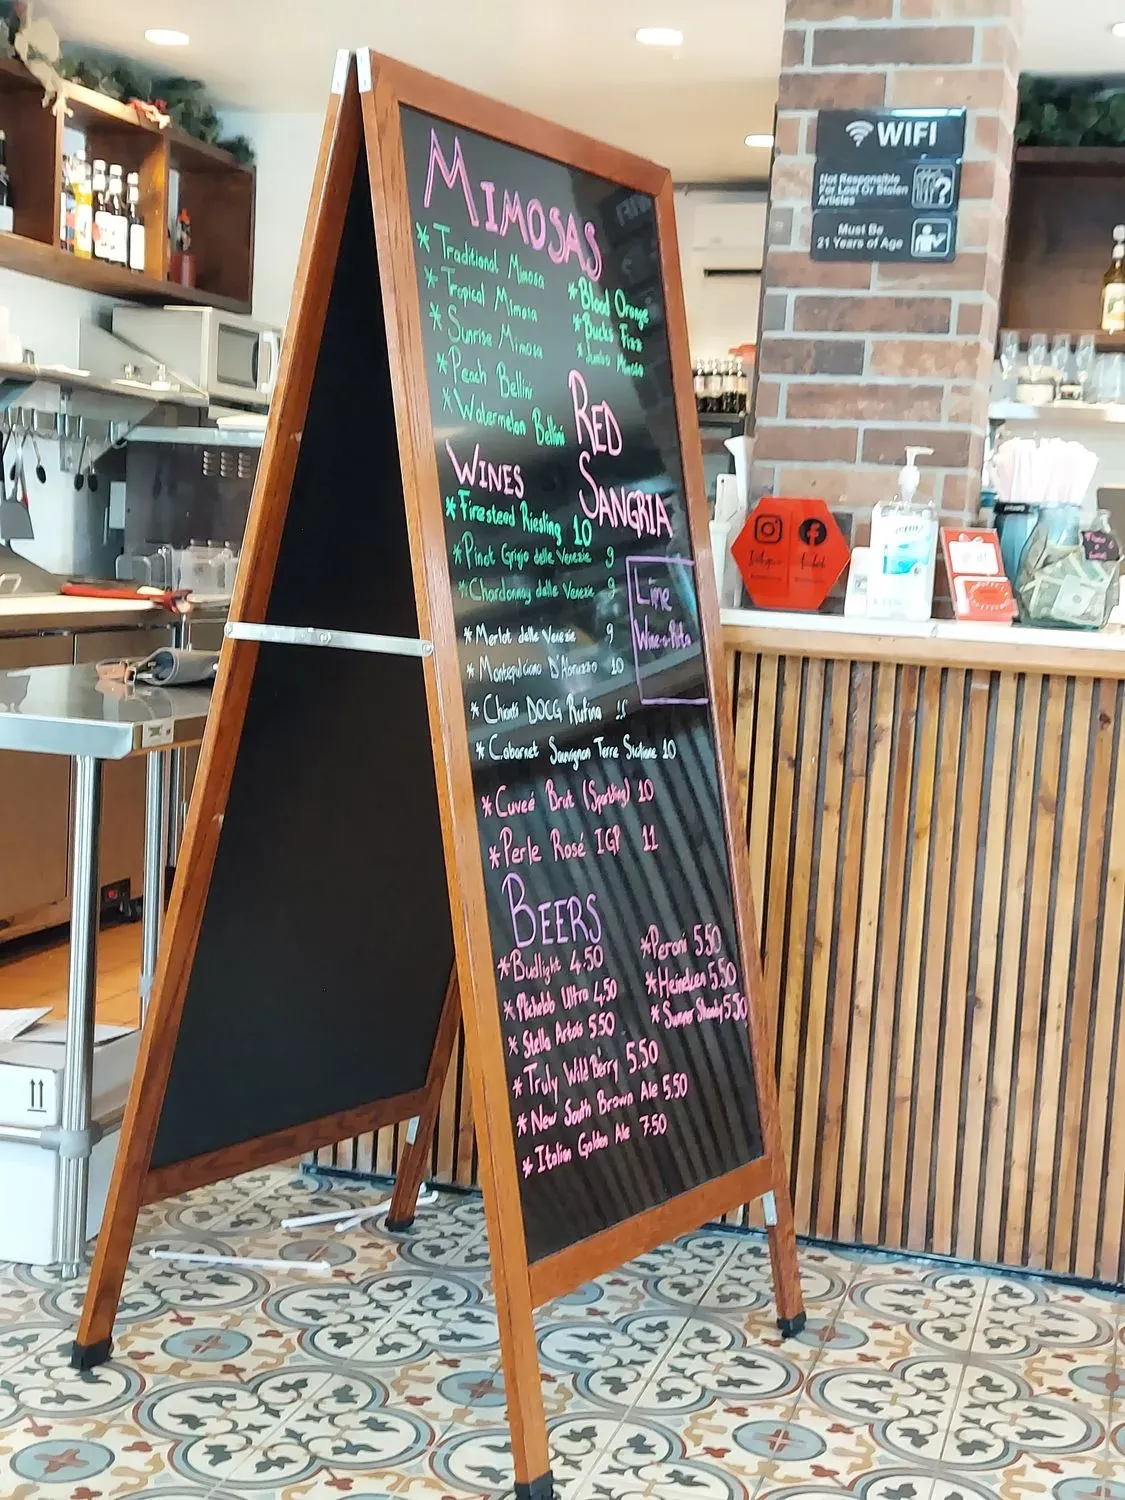 MIMOSAS
* Traditional Mimosa
* Tropical Mimosa
* Sunrise Mimosa
* Peach Bellini
* Watermelon Bellini
* Blood Orange
* Bucks Fizz
* Jumbo Mimosa
RED
SANGRIA
WINES
* Firesteed Riesling 10
* Pinot Grigio delle Venezie 9
* Chardonnay delle Venezie 9
* Merlot delle Venezie 9
* Montepulciano D'Abruzzo 10
* Chianti DOCG Rufina
* Cabernet Sauvignon Terre Siciliane 10
* Cuveé Brut (Sparkling) 10
* Perle Rosé IGP 11
Lime
Wine-a-Rita
BEERS
* Budlight 4.50
* Michelob Ultra 4.50
* Stella Artois 5.50
* Truly Wild Berry 5.50
* New South Brown Ale 5.50
* Italian Golden Ale 7.50
* Peroni 5.50
* Heineken 5.50
* Summer Shandy 5.50
WIFI
Not Responsible
For Lost Or Stolen
Articles
Must Be
21 Years of Age